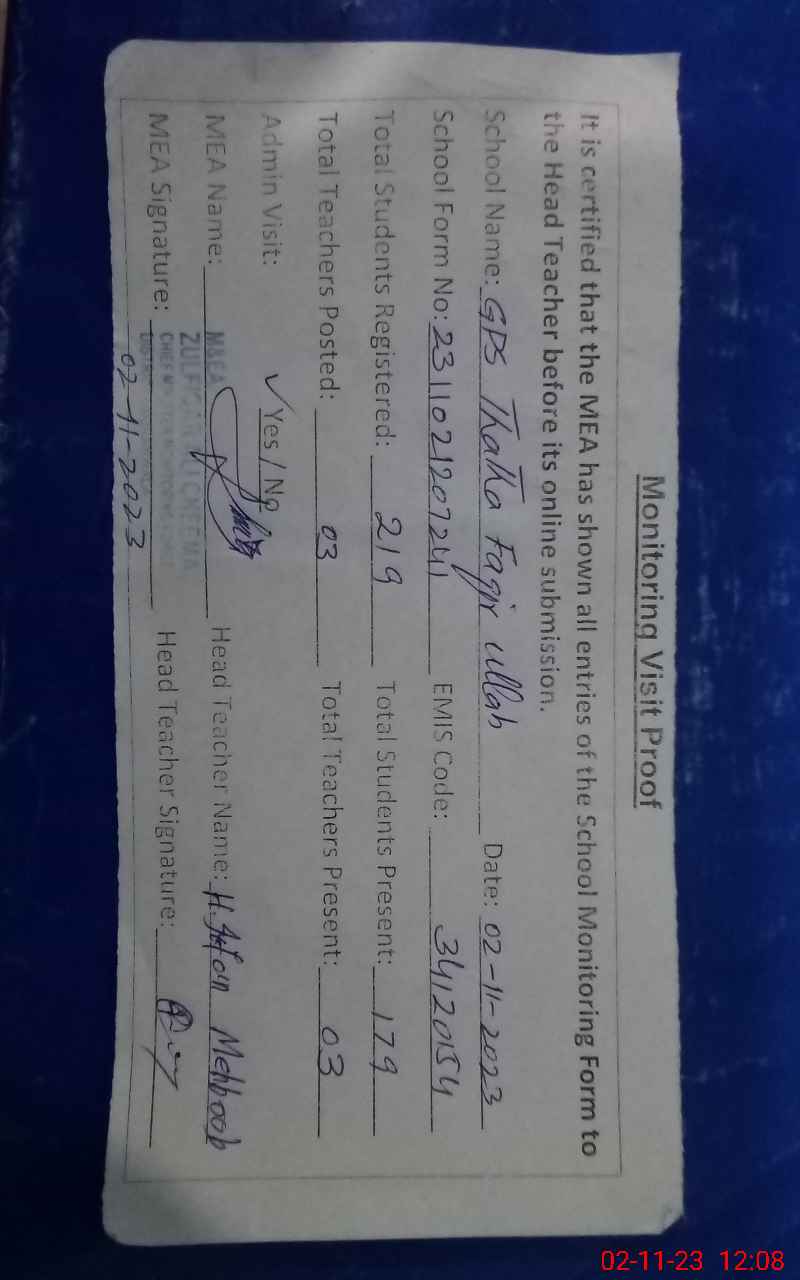 Monitoring Visit Proof
It is certified that the MEA has shown all entries of the School Monitoring Form to
the Head Teacher before its online submission.
School Name: GPS Thatta Faqir ullah Date: 02-11-2023
School Form No: 2311021207241 EMIS Code: 34120154
Total Students Registered: 219 Total Students Present: 179
Total Teachers Posted: 03 Total Teachers Present: 03
Admin Visit: ✓ Yes / No
MEA Name: M&EA Head Teacher Name: H. Mehboob
MEA Signature: Head Teacher Signature:
02-11-2023
02-11-23 12:08